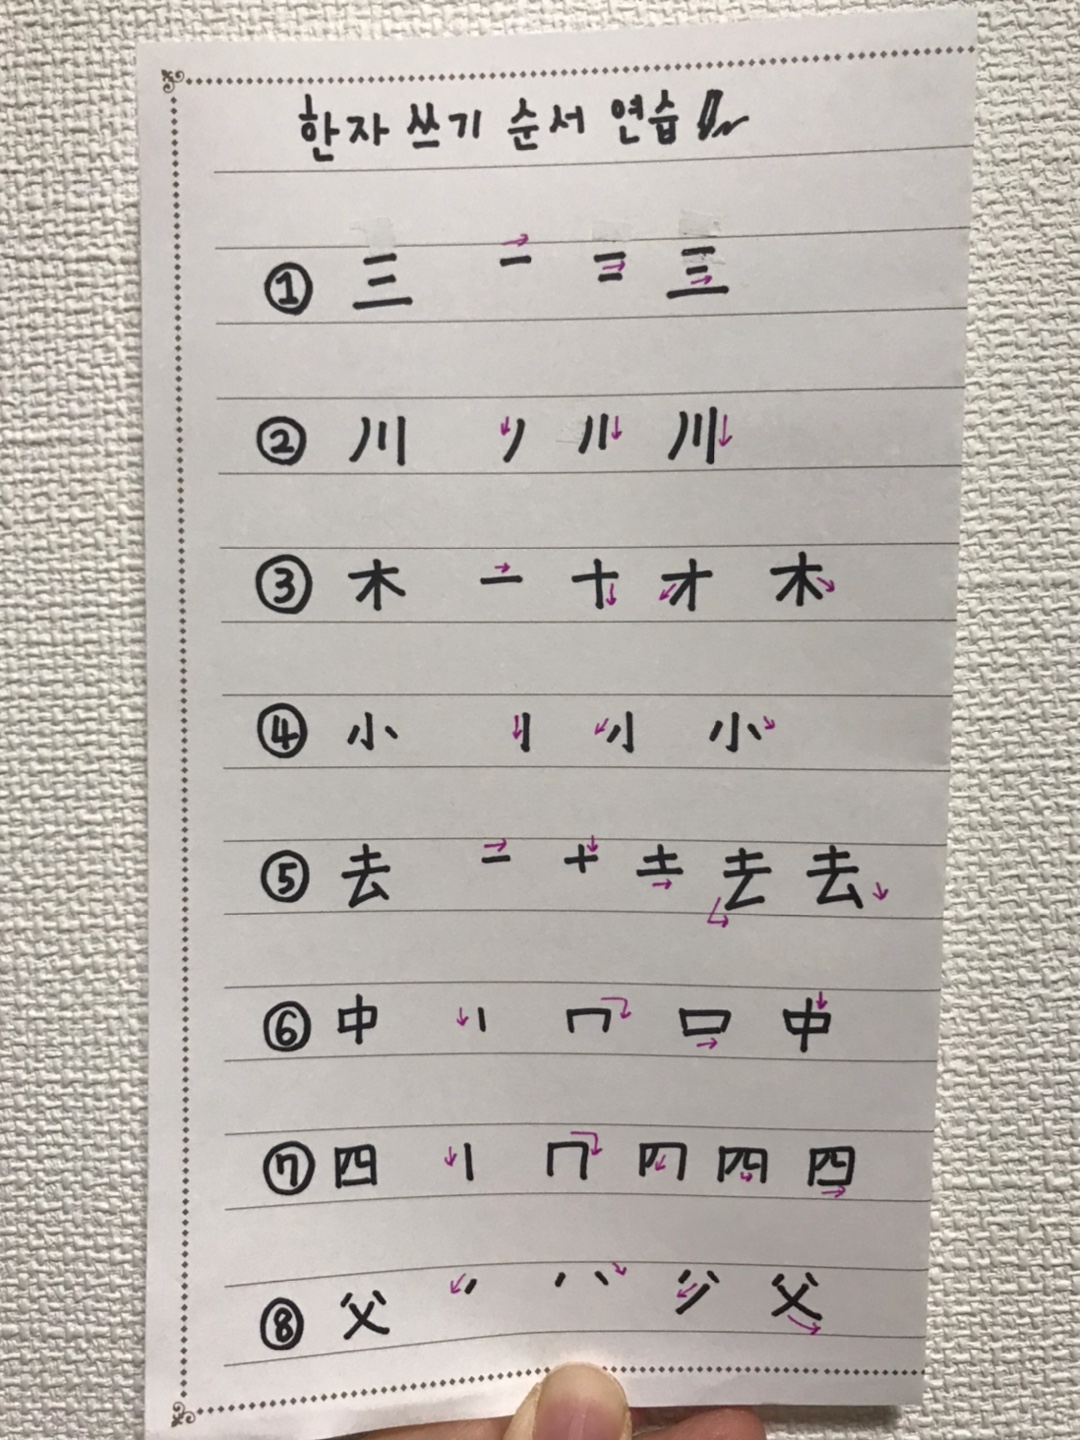 한자 쓰기 순서 연습
① 三 一 二 三
② 川 丿 川 川
③ 木 一 十 才 木
④ 小 亅 小 小
⑤ 去 一 十 土 去 去
⑥ 中 丨 冂 口 中
⑦ 四 丨 冂 四 四
⑧ 父 丿 八 父